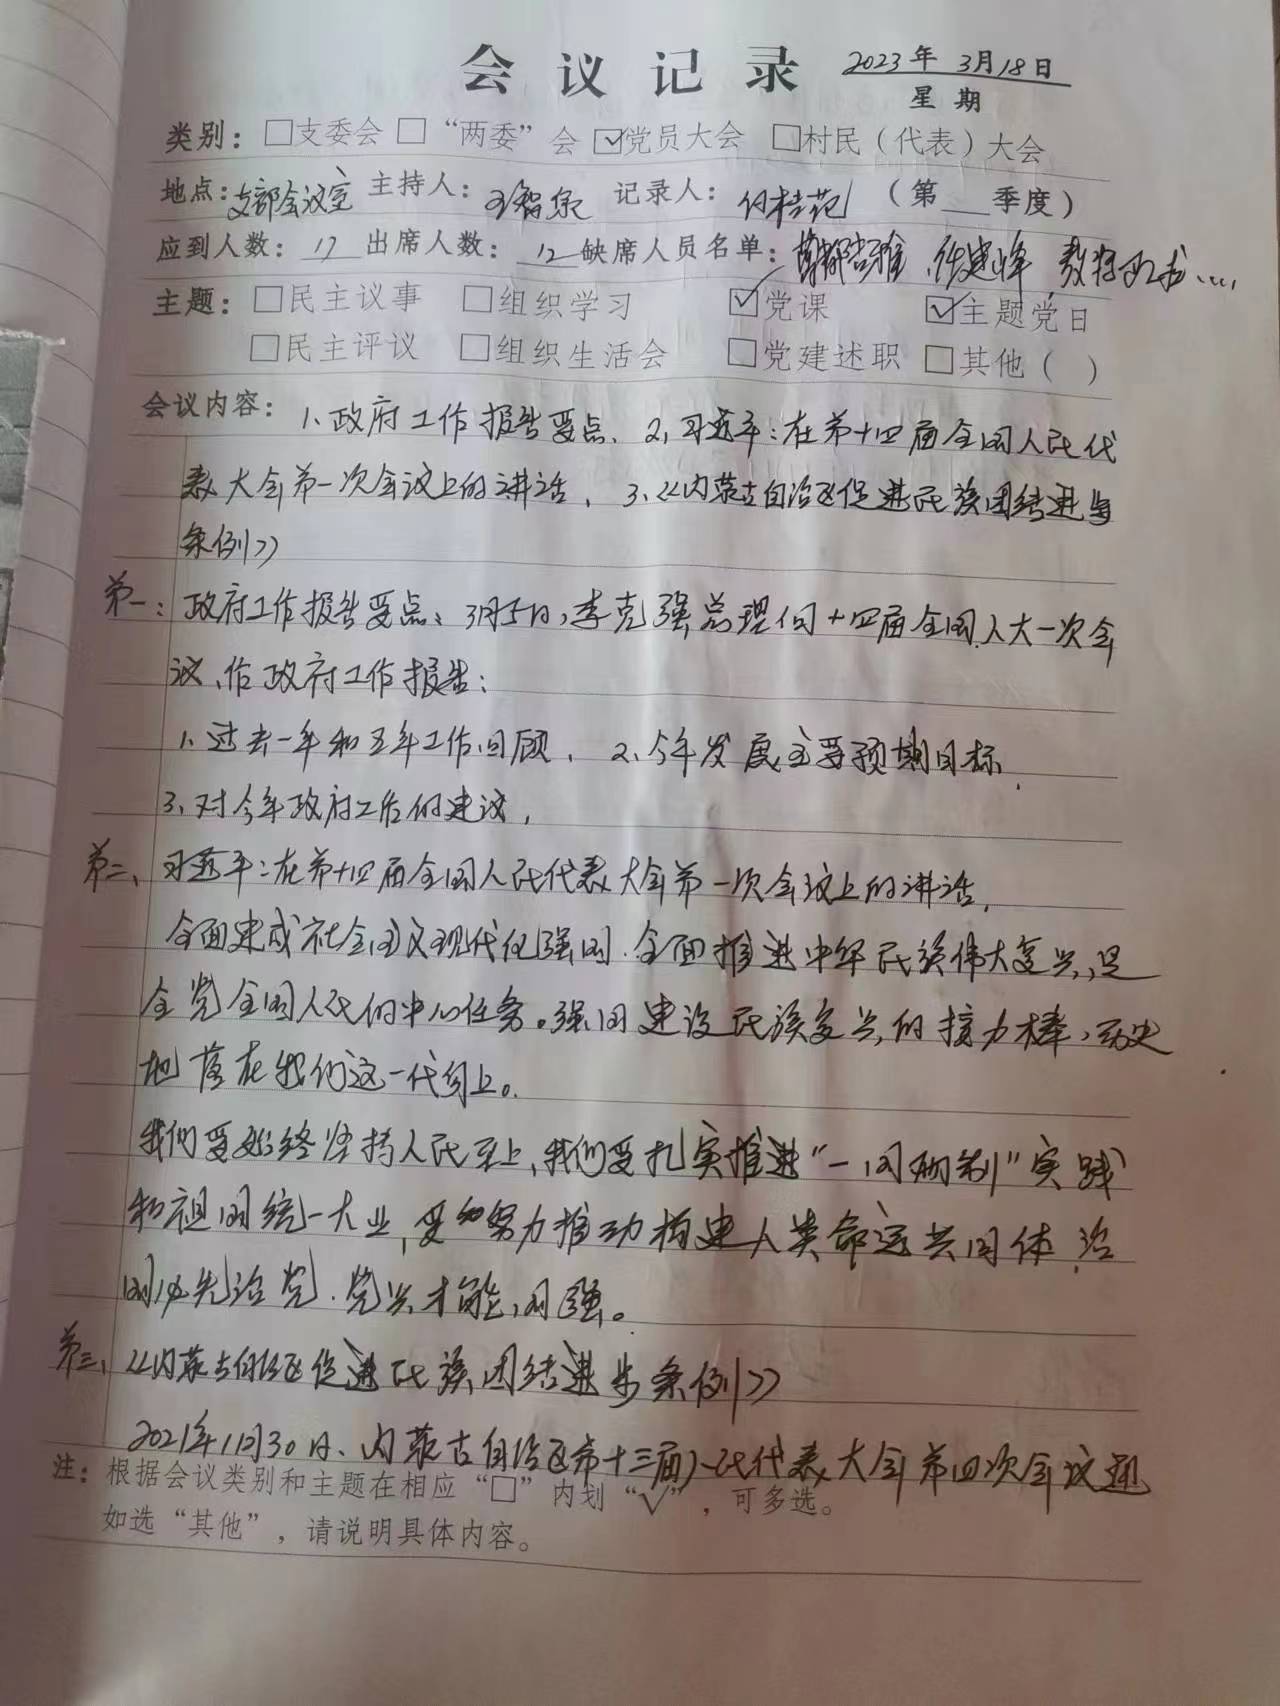 会议记录 2023年 3月18日
星期
类别：□支委会 □“两委”会 ☑党员大会 □村民（代表）大会
地点：支部会议室 主持人： 记录人： （第 季度）
应到人数：17 出席人数：12 缺席人员名单：
主题：□民主议事 □组织学习 ☑党课 ☑主题党日
□民主评议 □组织生活会 □党建述职 □其他（ ）
会议内容：1、政府工作报告要点、2、习近平：在第十四届全国人民代
表大会第一次会议上的讲话，3、《内蒙古自治区促进民族团结进步
条例》
第一：政府工作报告要点：3月5日，李克强总理向十四届全国人大一次会
议、作政府工作报告：
1、过去一年和五年工作回顾、2、今年发展主要预期目标、
3、对今年政府工作的建议，
第二、习近平：在第十四届全国人民代表大会第一次会议上的讲话，
全面建成社会主义现代化强国、全面推进中华民族伟大复兴，是
全党全国人民的中心任务。强国建设民族复兴的接力棒，历史
地落在我们这一代身上。
我们要始终坚持人民至上，我们要扎实推进“一国两制”实践
和祖国统一大业，要努力推动构建人类命运共同体，治
国必先治党、党兴才能，国强。
第三、《内蒙古自治区促进民族团结进步条例》
2021年1月30日、内蒙古自治区第十三届人民代表大会第四次会议通
注：根据会议类别和主题在相应“□”内划“√”，可多选。
如选“其他”，请说明具体内容。